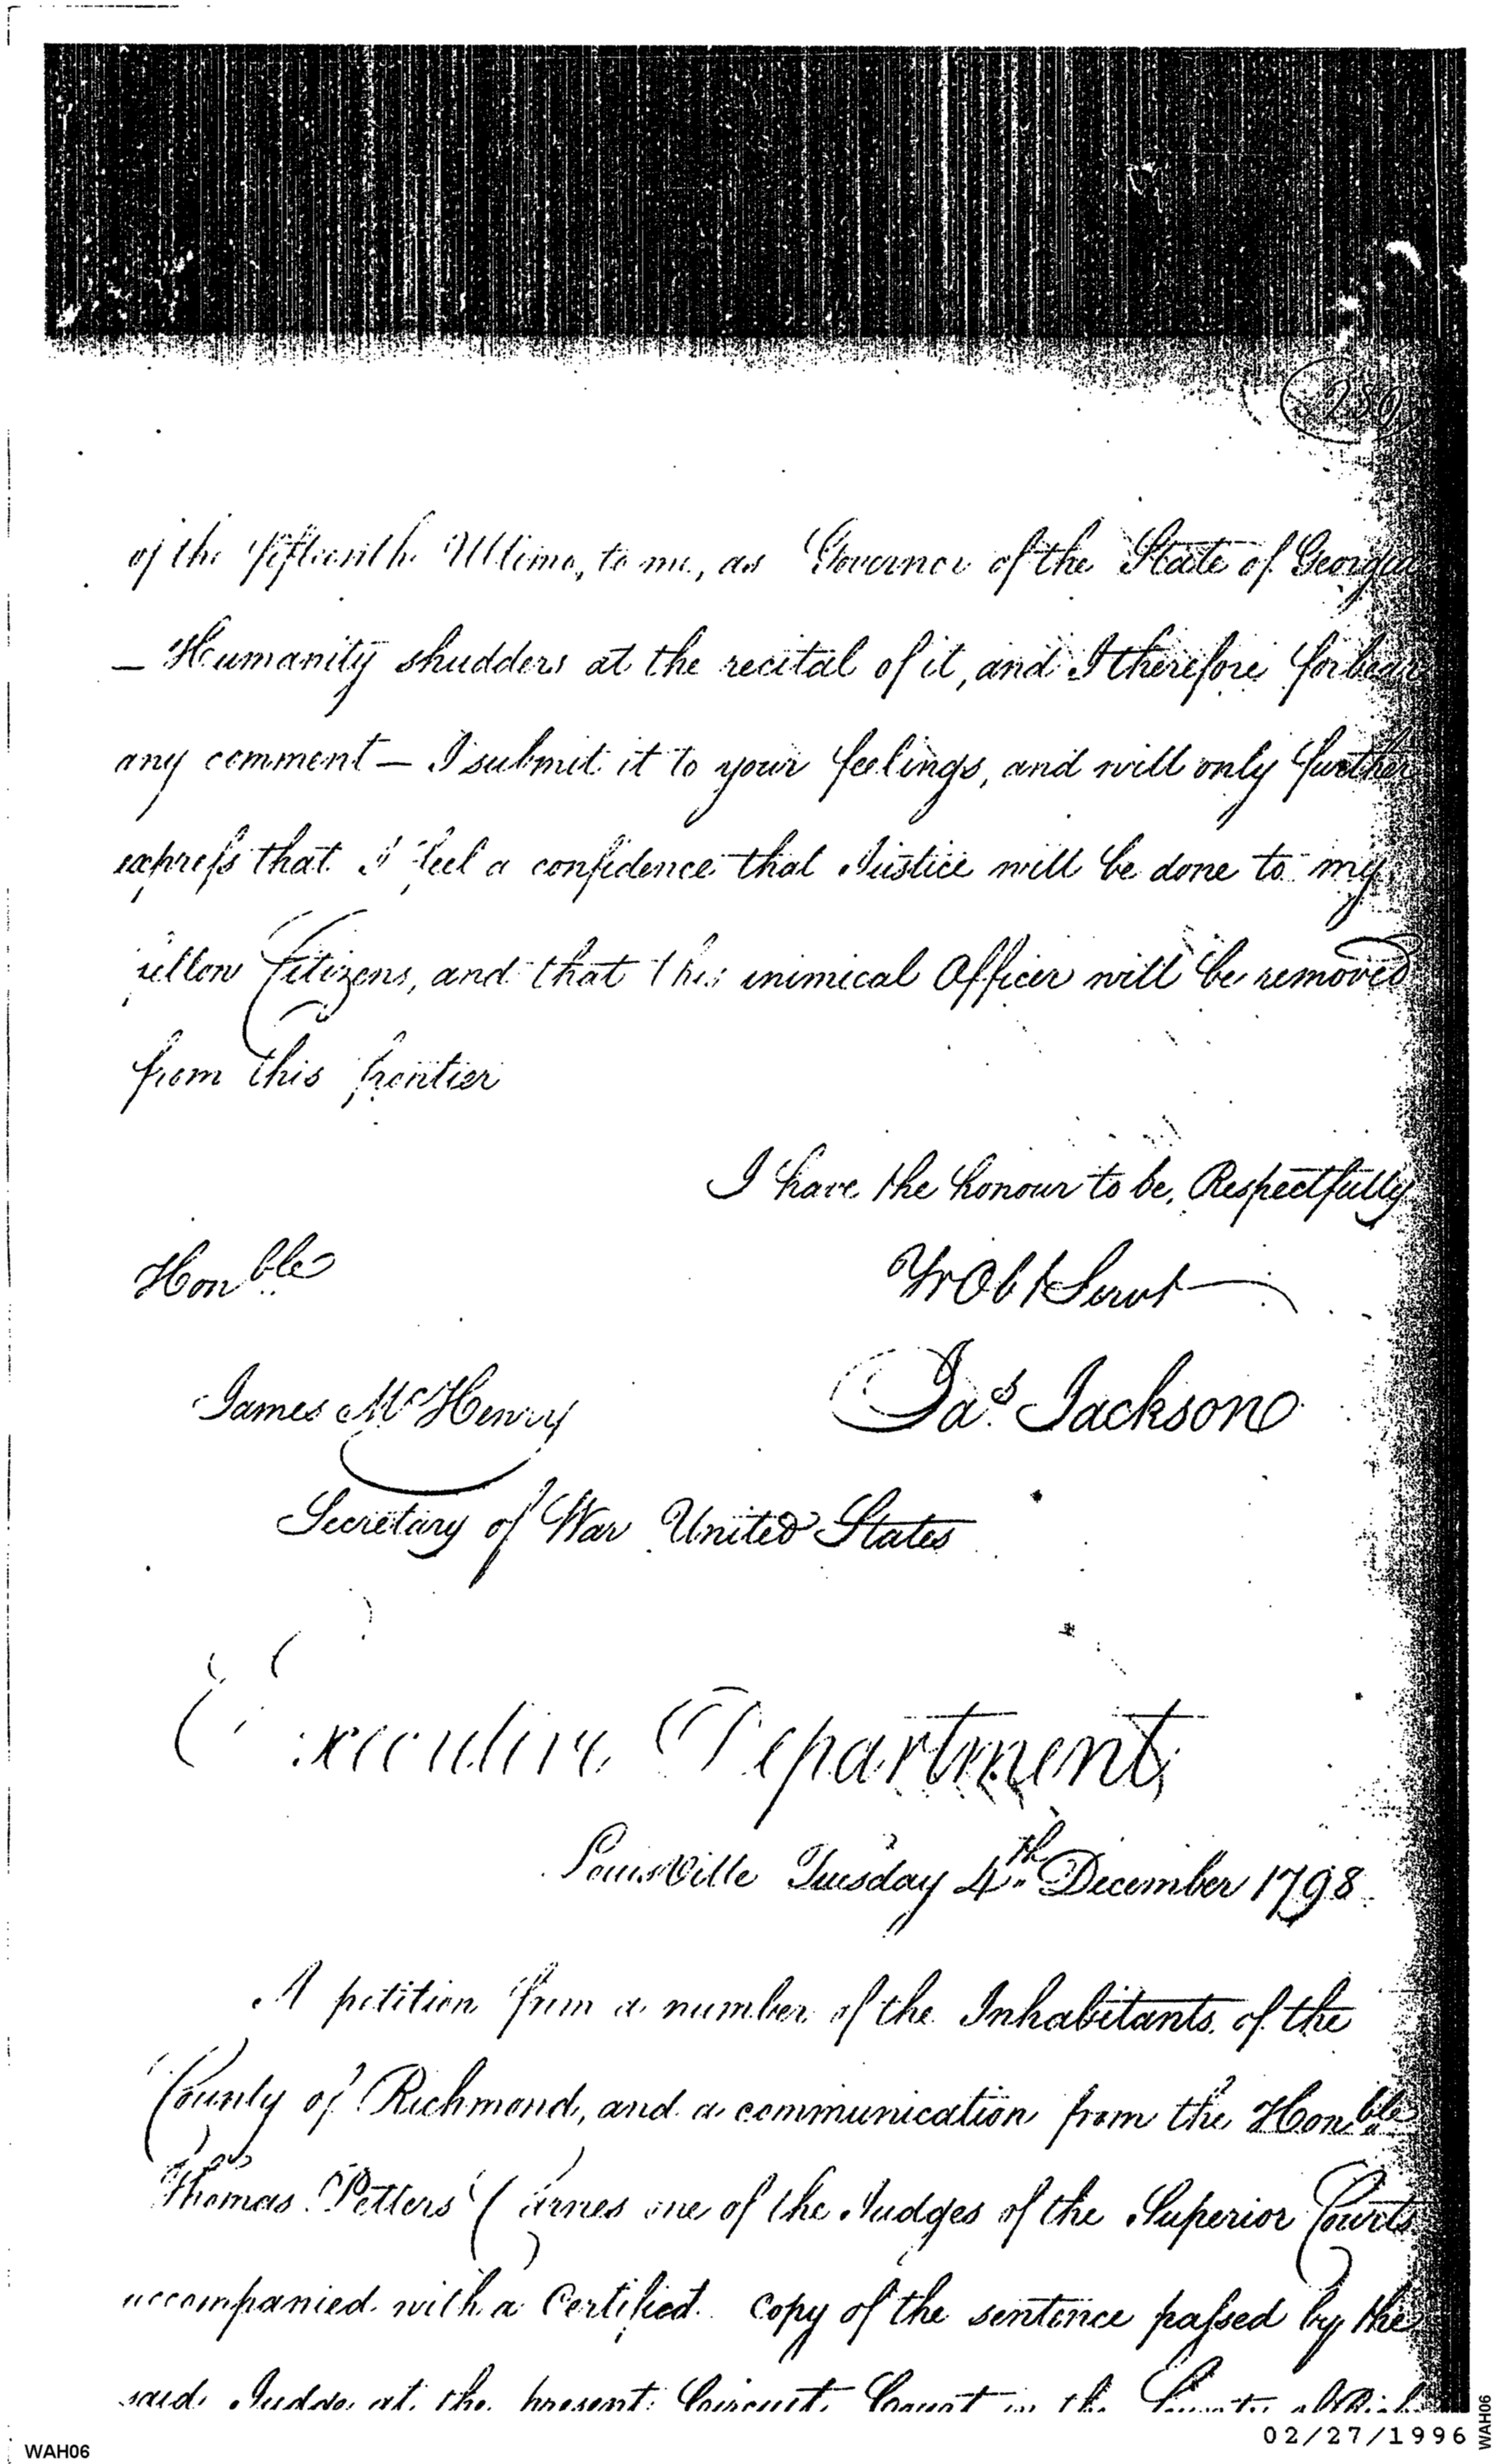 280
of the fifteenth Ultimo, to me, as Governor of the State of Georgia
— Humanity shudders at the recital of it, and I therefore forbear
any comment — I submit it to your feelings, and will only further
express that I feel a confidence that Justice will be done to my
fellow Citizens, and that this inimical Officer will be removed
from this frontier
I have the honour to be, Respectfully
Honble
Yr Obt Servt
James McHenry
Jas Jackson
Secretary of War United States
Executive Department,
Louisville Tuesday 4th December 1798
A petition from a number of the Inhabitants of the
County of Richmond, and a communication from the Honble
Thomas Petters Carnes one of the Judges of the Superior Courts
accompanied with a Certified copy of the sentence passed by the
said Judge at the present Circuit Court in the County of
02/27/1996
WAH06
WAH06